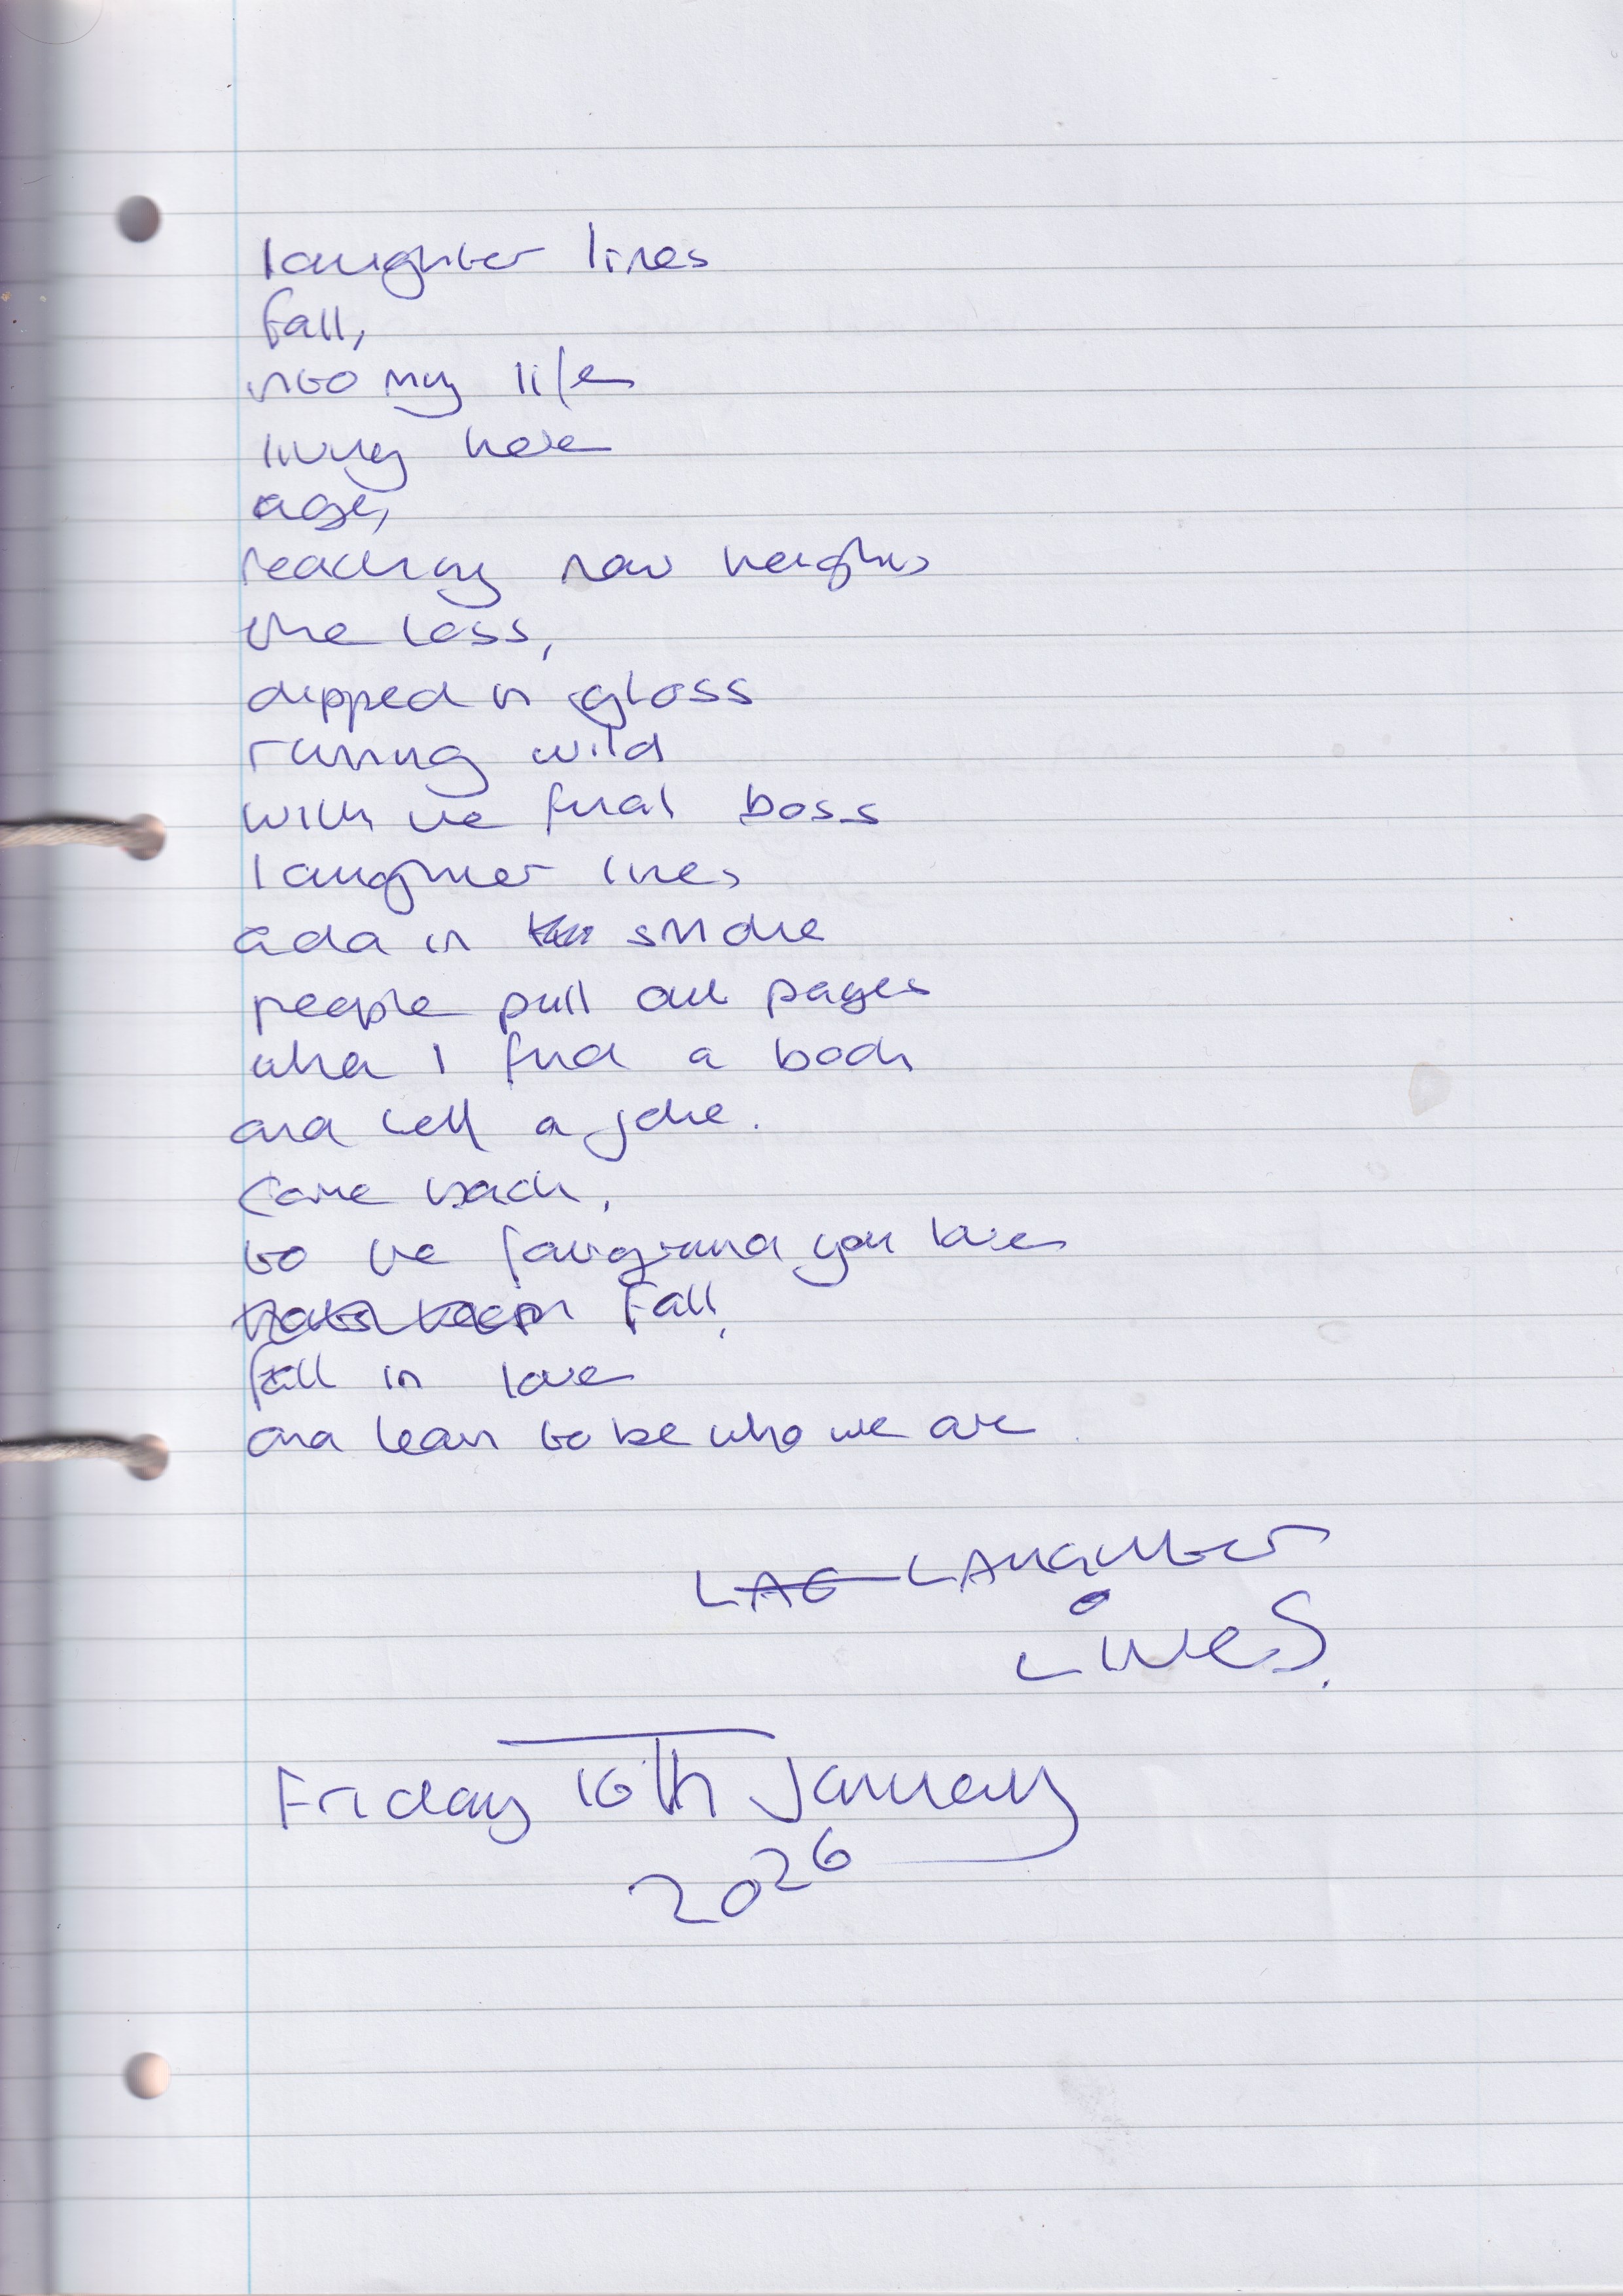 laughter lines
fall,
into my life
living here
age,
reaching new heights
the loss,
dipped in gloss
running wild
with the final boss
laughter lines
add in smoke
people pull out pages
when I find a book
and tell a joke.
Come back,
to the fairground you love
fall,
fall in love
and learn to be who we are.
LAUGHTER
LINES.
Friday 16th January
2026